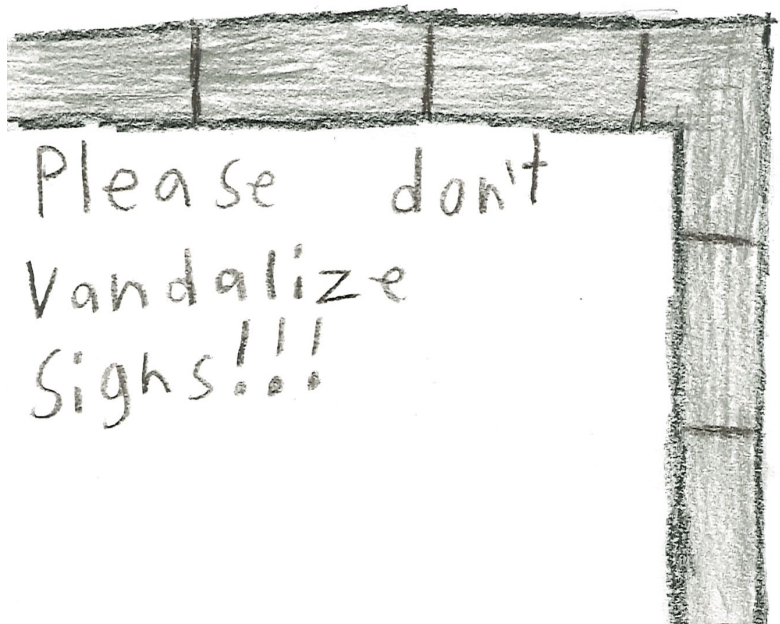 Please don't
Vandalize
Signs!!!